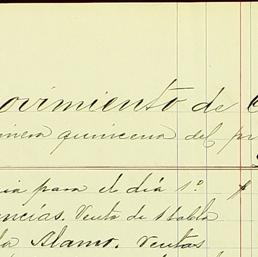 ovimiento de C
imera quincena del pr
ia para el día 1º
encias. Venta de 1 tabla
la Alamo. Ventas